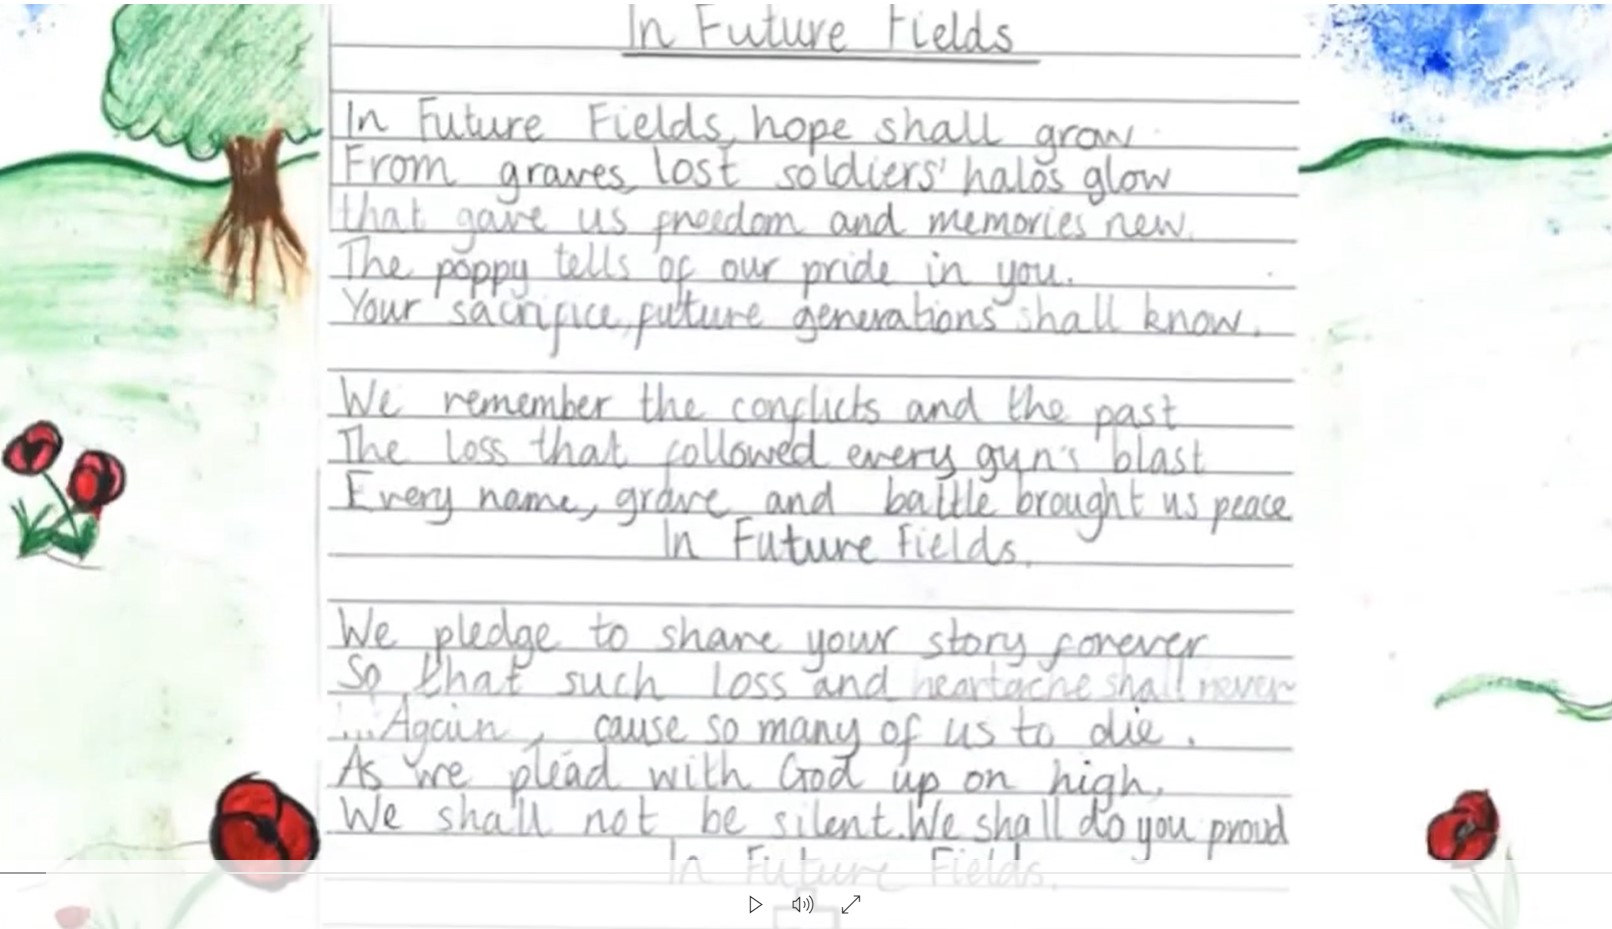 In Future Fields
In Future Fields, hope shall grow
From graves, lost soldiers' halos glow
that gave us freedom and memories new.
The poppy tells of our pride in you.
Your sacrifice, future generations shall know.
We remember the conflicts and the past
The loss that followed every gun's blast
Every name, grave and battle brought us peace
In Future Fields.
We pledge to share your story forever
So that such loss and heartache shall never
...Again, cause so many of us to die.
As we plead with God up on high,
We shall not be silent. We shall do you proud
In Future Fields.